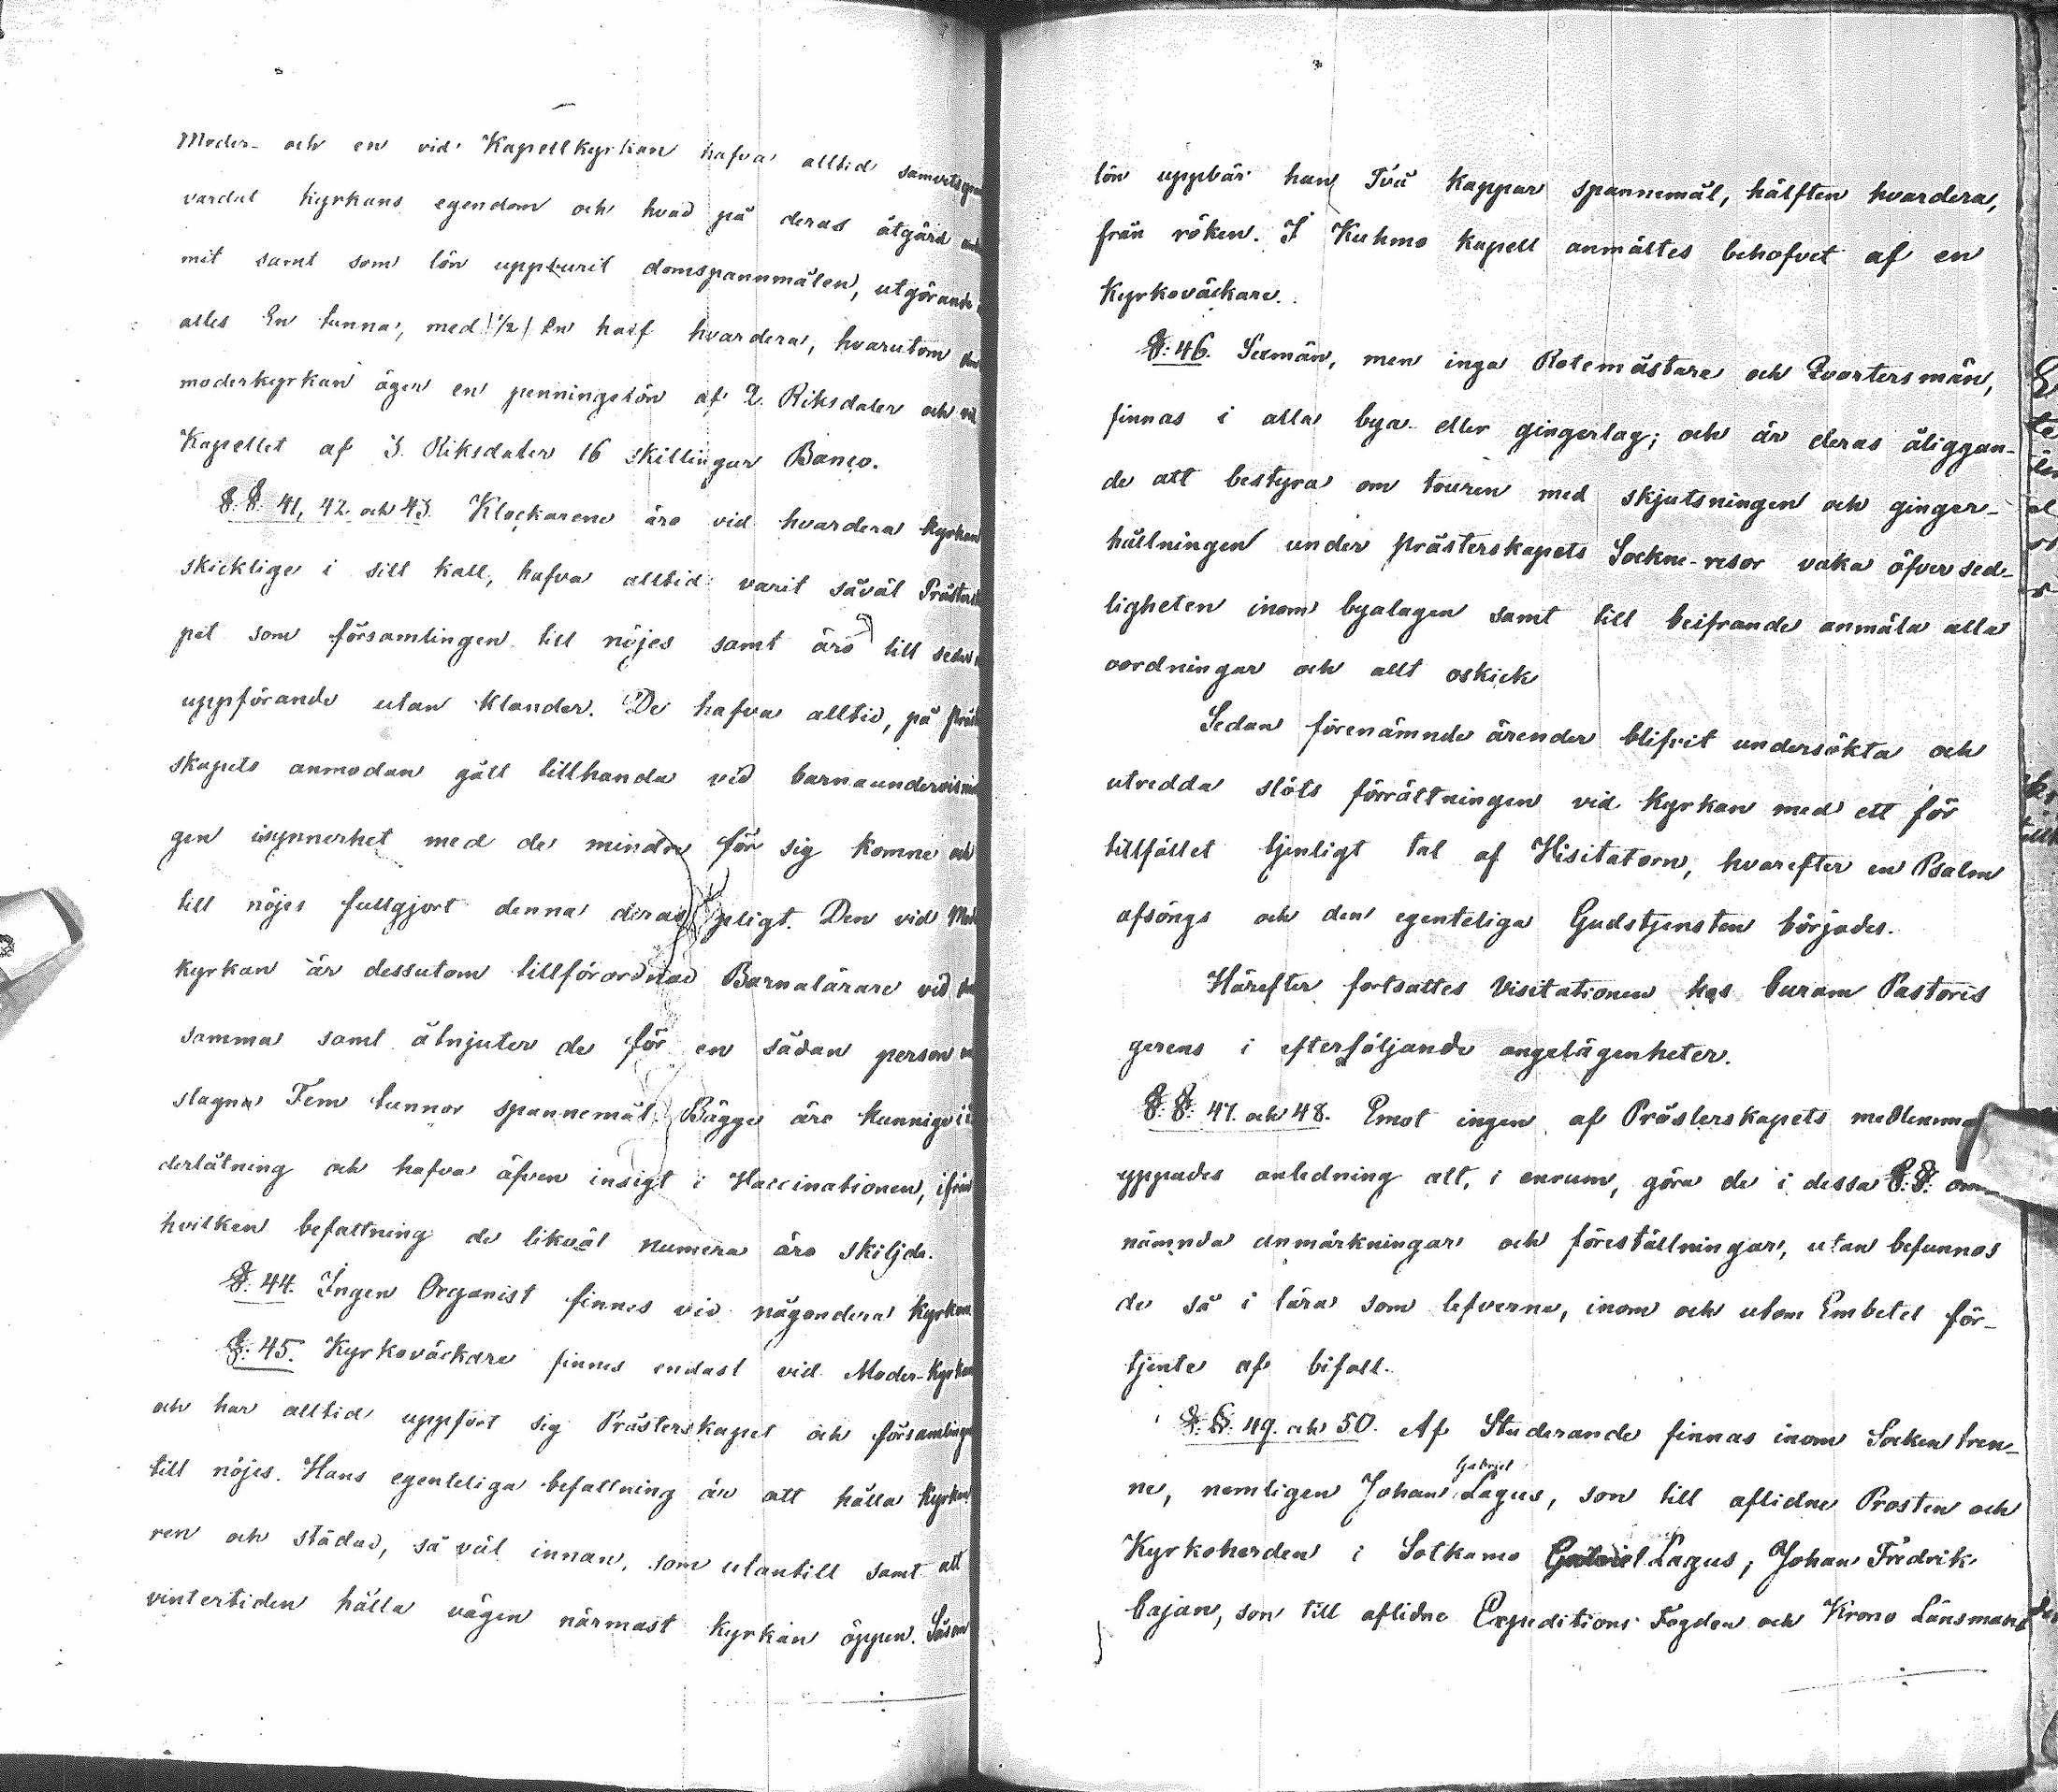 Moder- och en vid Kapellkyrkan hafva alltid
vardat kyrkans egendom och hvad på deras åtgärd
mit samt som lön uppburit domspannmålen, utgörande
alles En tunna, med /½/ En half hvardera, hvarutom
moderkyrkan äger en penningelön af 2. Riksdaler och vid
Kapellet af 3. Riksdaler 16 skillingar Banco.
§.§. 41, 42. och 43. Klockarene äro vid hvardera kyrkan
skicklige i sitt kall, hafva alltid varit såväl Prästerska
pet som församlingen till nöjes samt äro till seder
uppförande utan klander. De hafva alltid, på präst
skapets anmodan gått tillhanda vid barnaundervisnin
gen isynnerhet med de mindre för sig komne och
till nöjes fullgjort denna deras pligt. Den vid Mod
kyrkan är dessutom tillförordnad Barnalärare vid den
samma samt åtnjuter de för en sådan person
slagna Fem tunnor spannemål. Bägge äro kunnige i
derlåtning och hafva äfven insigt i Vaccinationen, ifrån
hvilken befattning de likväl numera äro skiljde.
§. 44. Ingen Organist finnes vid någondera kyrkan.
§. 45. Kyrkoväckare finnes endast vid Moder-kyrkan
och har alltid uppfört sig Prästerskapet och församlingen
till nöjes. Hans egenteliga befattning är att hålla kyrkan
ren och städad, så väl innan, som utantill samt att
vintertiden hålla vägen närmast kyrkan öppen. Såsom
lön uppbär han Två kappar spannemål, hälften hvardera,
från röken. I Kuhmo kapell anmältes behofvet af en
Kyrkoväckare.
§. 46. Sexmän, men inga Rotemästare och Qvartersmän,
finnas i alla bya- eller gingerlag; och är deras åliggan-
de att bestyra om touren med skjutsningen och ginger-
hållningen under prästerskapets Sockne-resor vaka öfver sed-
ligheten inom byalagen samt till beifrande anmäla alla
oordningar och allt oskick
Sedan förenämnde ärender blifvit undersökta och
utredda slöts förrättningen vid kyrkan med ett för
tillfället tjenligt tal af Visitatorn, hvarefter en Psalm
afsöngs och den egenteliga Gudstjensten börjades.
Härefter fortsattes Visitationen hos Curam Pastoris
gerens i efterföljande angelägenheter.
§.§. 47. och 48. Emot ingen af Prästerskapets medlemmar
yppades anledning att, i enrum, göra de i dessa §.§. om
nämnda anmärkningar och föreställningar, utan befunnos
de så i lära som lefverne, inom och utom Embetet för-
tjente af bifall.
§.§. 49. och 50. Af Studerande finnas inom Socken tren-
ne, nemligen Johan Gabriel Lagus, son till aflidne Prosten och
Kyrkoherden i Sotkamo Gabriel Lagus, Johan Fredrik
Cajan, son till aflidne Expeditions Fogden och Krono Länsmans